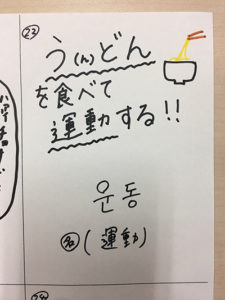 ㉓
う(ん)どん
を食べて
運動する!!
운동
㊔(運動)